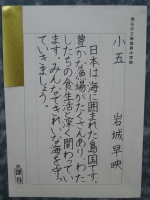 小五 岩城早映
日本は海に囲まれた島国です。
豊かな漁場がたくさんあり、わた
したちの食生活と深く関わってい
ます。みんなできれいな海を守っ
ていきましょう。